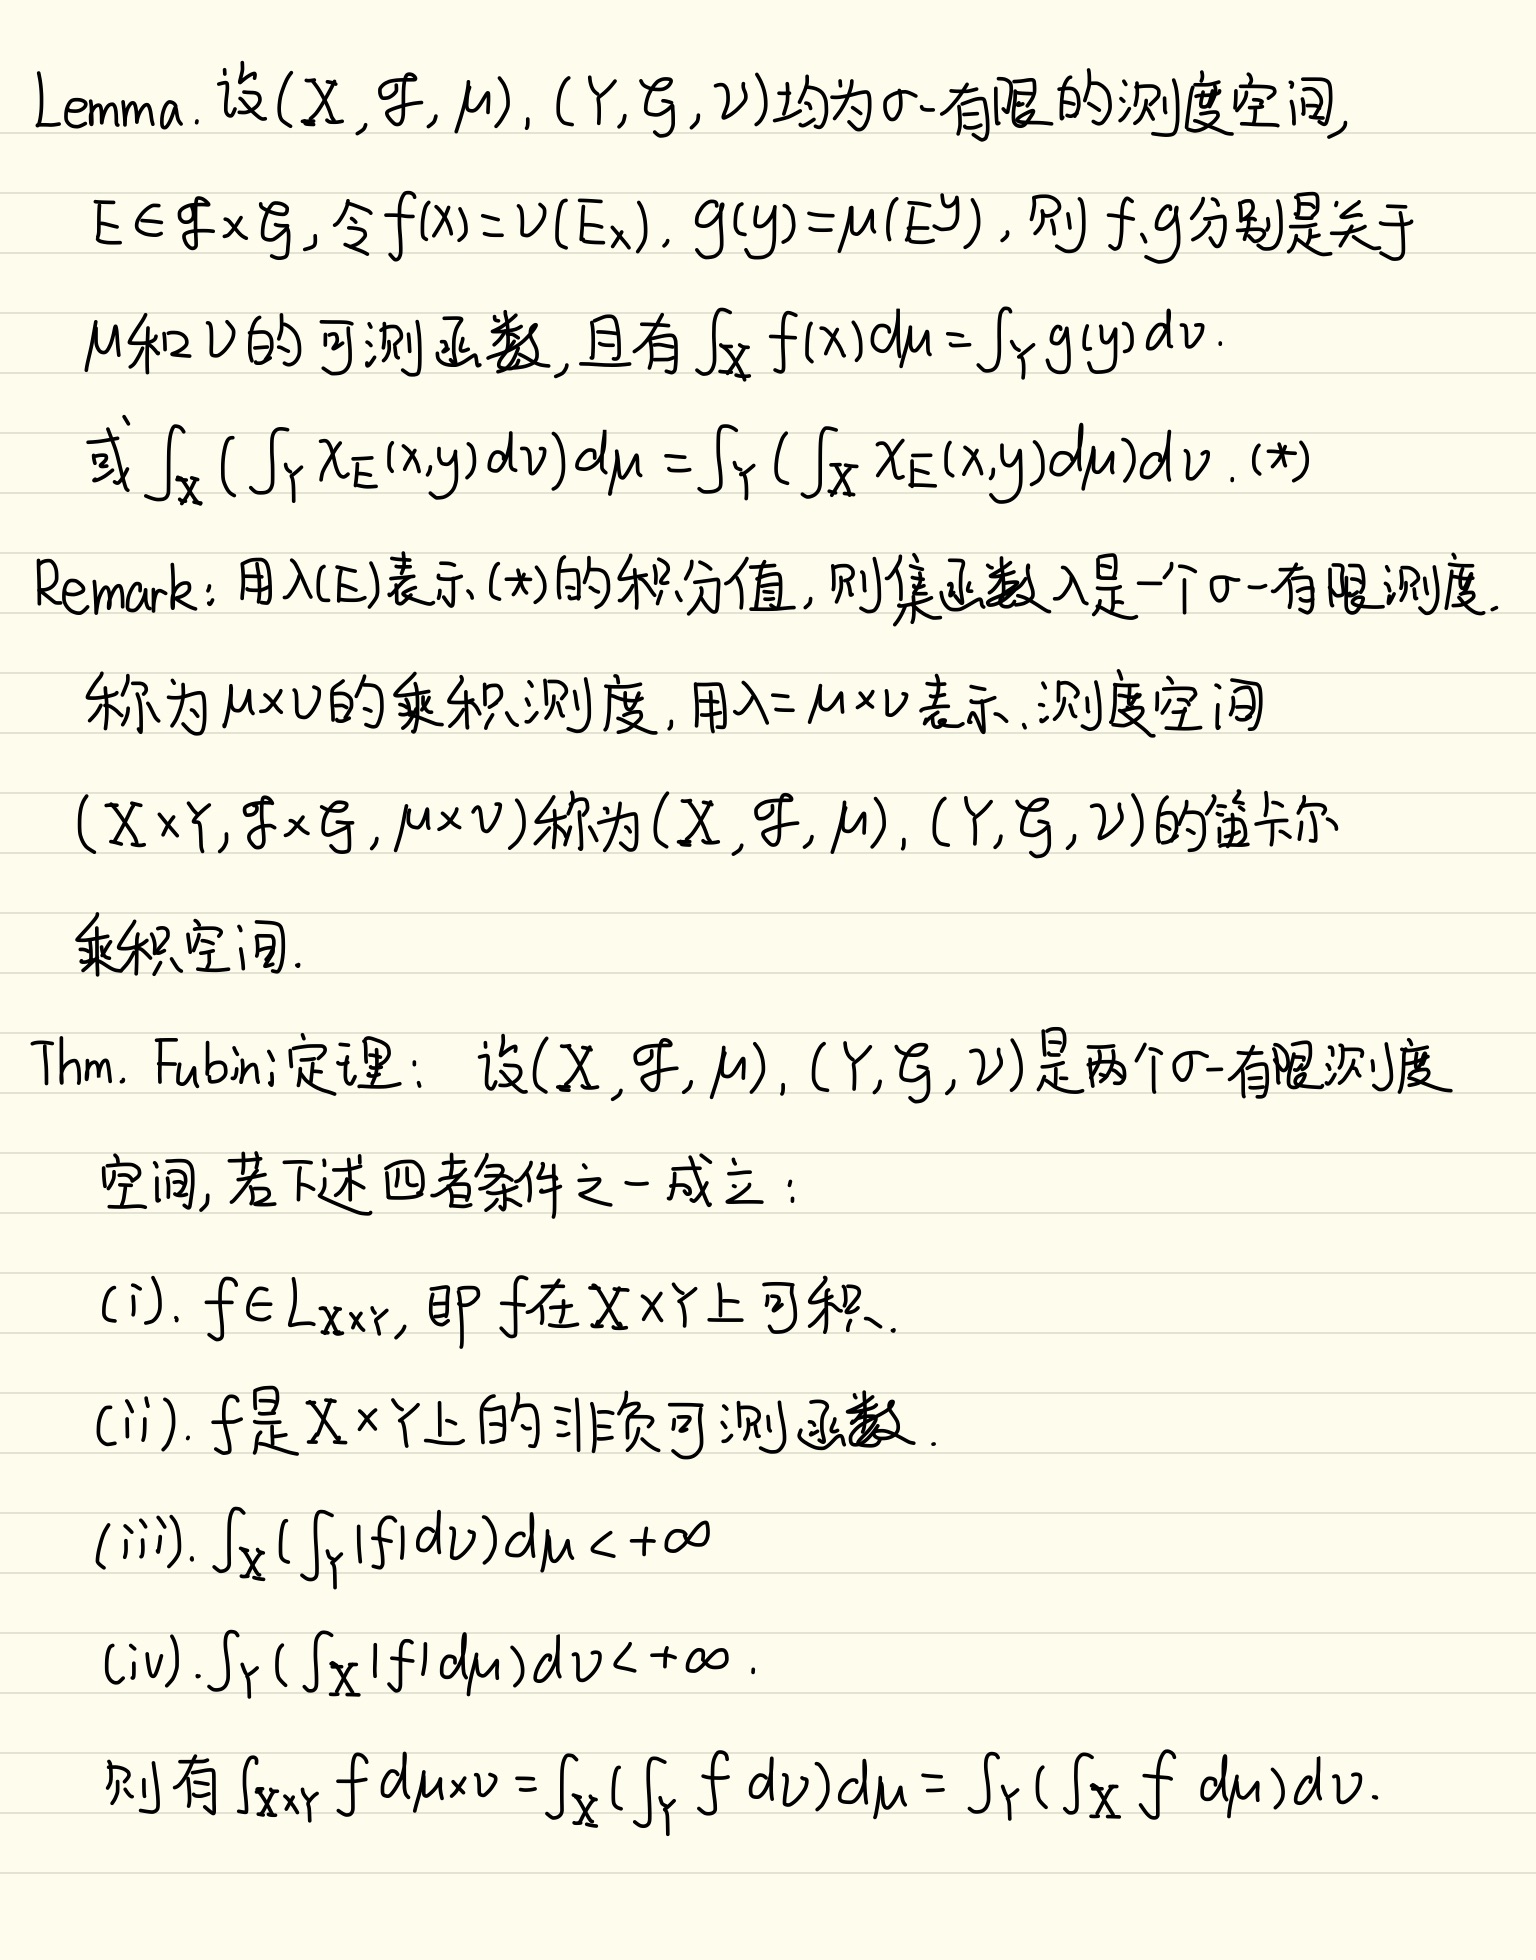 Lemma. 设(X, ℱ, μ), (Y, 𝒢, ν)均为σ-有限的测度空间,
E∈ℱ×𝒢, 令f(x)=ν(E_x), g(y)=μ(E^y), 则 f、g分别是关于
μ和ν的可测函数, 且有∫_X f(x)dμ=∫_Y g(y)dν.
或∫_X(∫_Y χ_E(x,y)dν)dμ=∫_Y(∫_X χ_E(x,y)dμ)dν. (*)
Remark: 用λ(E)表示(*)的积分值, 则集函数λ是一个σ-有限测度.
称为μ×ν的乘积测度, 用λ=μ×ν表示. 测度空间
(X×Y, ℱ×𝒢, μ×ν)称为(X, ℱ, μ), (Y, 𝒢, ν)的笛卡尔
乘积空间.
Thm. Fubini定理: 设(X, ℱ, μ), (Y, 𝒢, ν)是两个σ-有限测度
空间, 若下述四者条件之一成立:
(i). f∈L_{X×Y}, 即 f在X×Y上可积.
(ii). f是X×Y上的非负可测函数.
(iii). ∫_X(∫_Y|f|dν)dμ<+∞
(iv). ∫_Y(∫_X|f|dμ)dν<+∞.
则有∫_{X×Y} f dμ×ν=∫_X(∫_Y f dν)dμ=∫_Y(∫_X f dμ)dν.